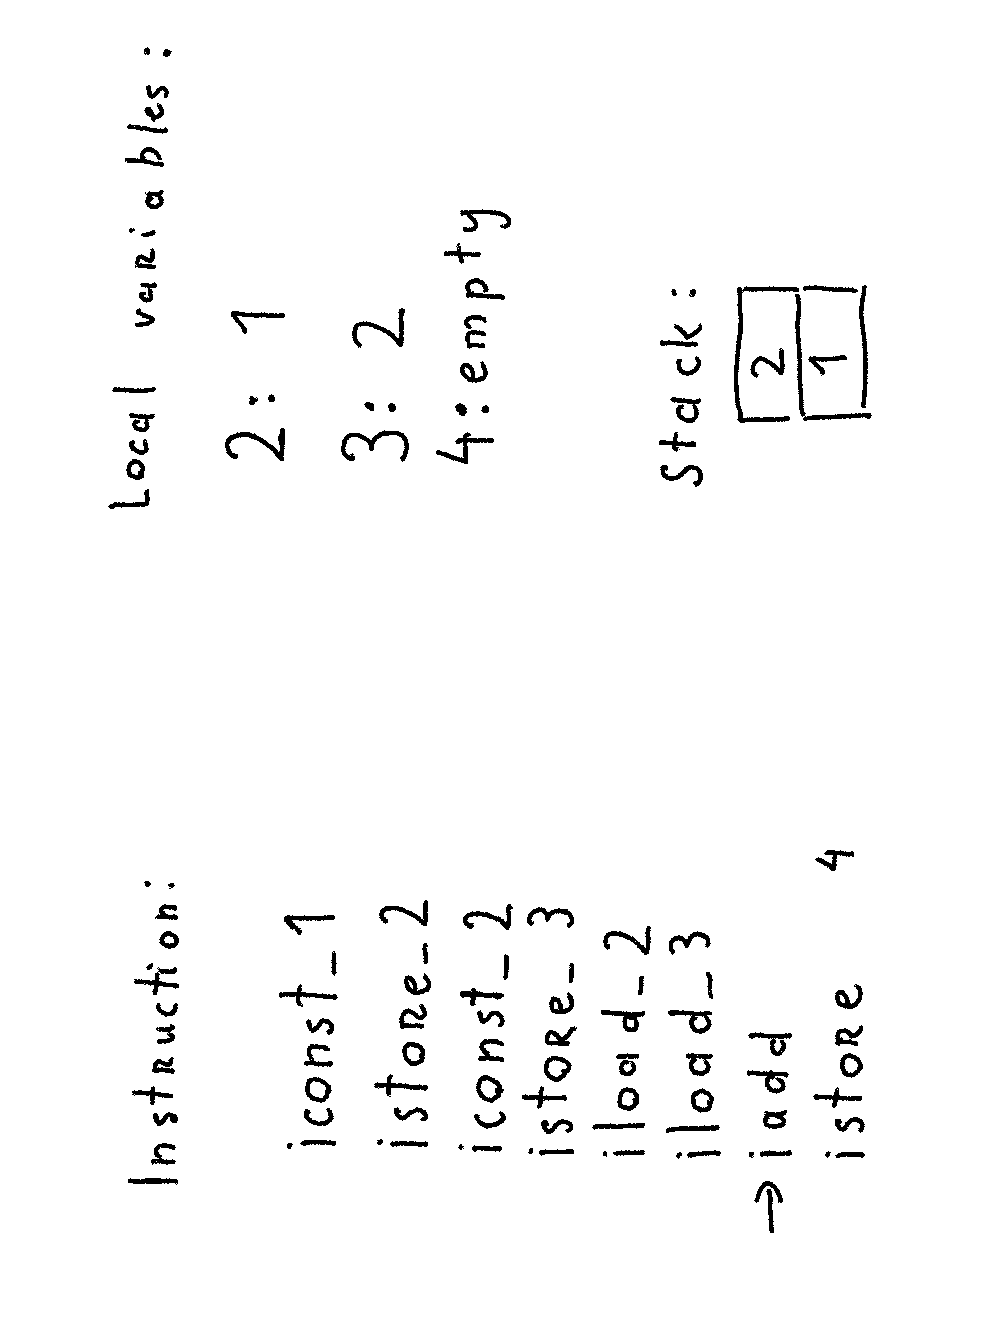 Instruction:
iconst_1
istore_2
iconst_2
istore_3
iload_2
iload_3
→ iadd
istore 4
Local variables:
2: 1
3: 2
4: empty
Stack:
2
1